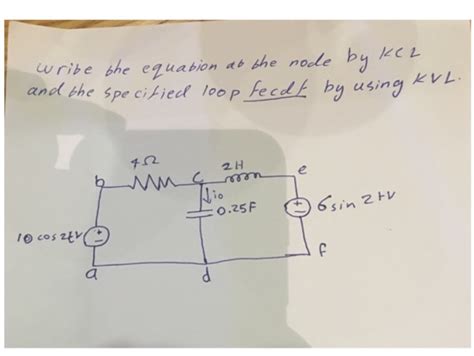 write the equation at the node by KCL
and the specified loop fecdf by using KVL.
4Ω
2H
b
c
e
io
0.25F
6sin2tV
10cos2tV
a
d
f